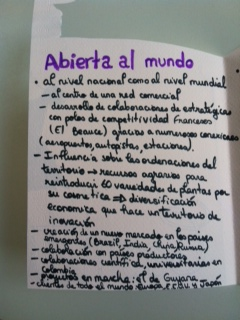 Abierta al mundo
• al nivel nacional como al nivel mundial
– al centro de una red comercial
– desarrollo de colaboraciones de estratégicas
con polos de competitividad Franceses
(El Beauce) gracias a numerosas conexiones
(aeropuertos, autopistas, estaciones).
– Influencia sobre las ordenaciones del
territorio → recursos agrarios para
reintroducir 60 variedades de plantas por
su cosmetica ⇒ diversificación
economica que hace un territorio de
inovación
– creación de un nuevo mercado en los países
emergentes (Brazil, India, China, Rusia)
– colaboración con países productores
– colaboraciones científicas, universitarias en
Colombia
– proyectos en marcha: el de Guyana
– clientes de todo el mundo Europa, EEUU y Japón